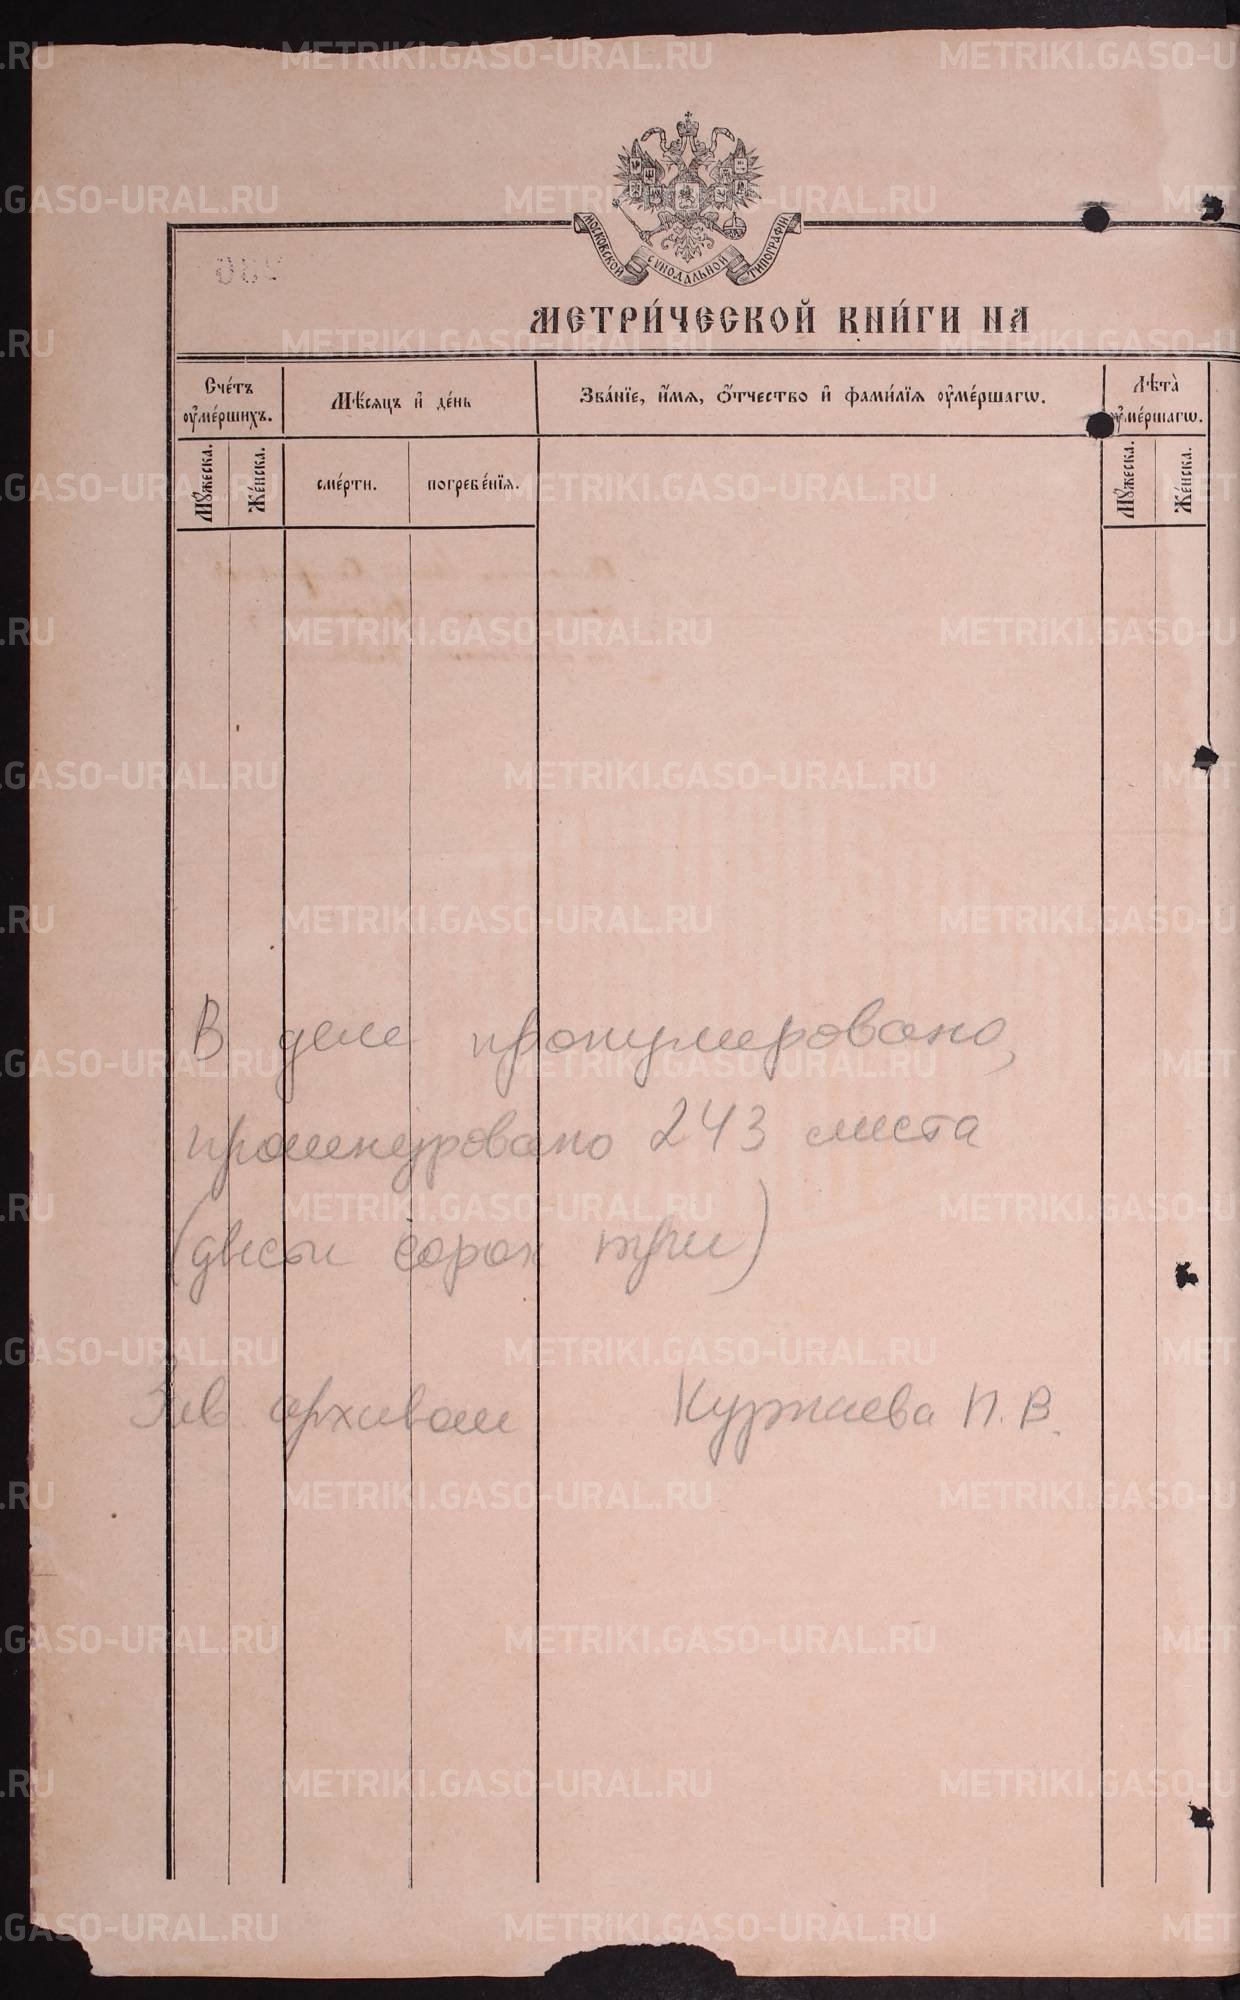 МОСКОВСКОЙ СѴНОДАЛЬНОЙ ТИПОГРАФІИ
МЕТРИ́ЧЕСКОЙ КНИ́ГИ НА
Сче́тъ оу҆ме́ршихъ.
Мѣ́сяцъ и҆ де́нь
Зва́нїе, и҆́мѧ, ѻ҆́тчество и҆ фами́лїѧ оу҆ме́ршагѡ.
Лѣта̀ оу҆ме́ршагѡ.
Мꙋ́жеска.
Же́нска.
сме́рти.
погребе́нїѧ.
Мꙋ́жеска.
Же́нска.
В деле пронумеровано,
прошнуровано 243 листа
(двести сорок три)
Зав архивом Куржиева П. В.
METRIKI.GASO-URAL.RU